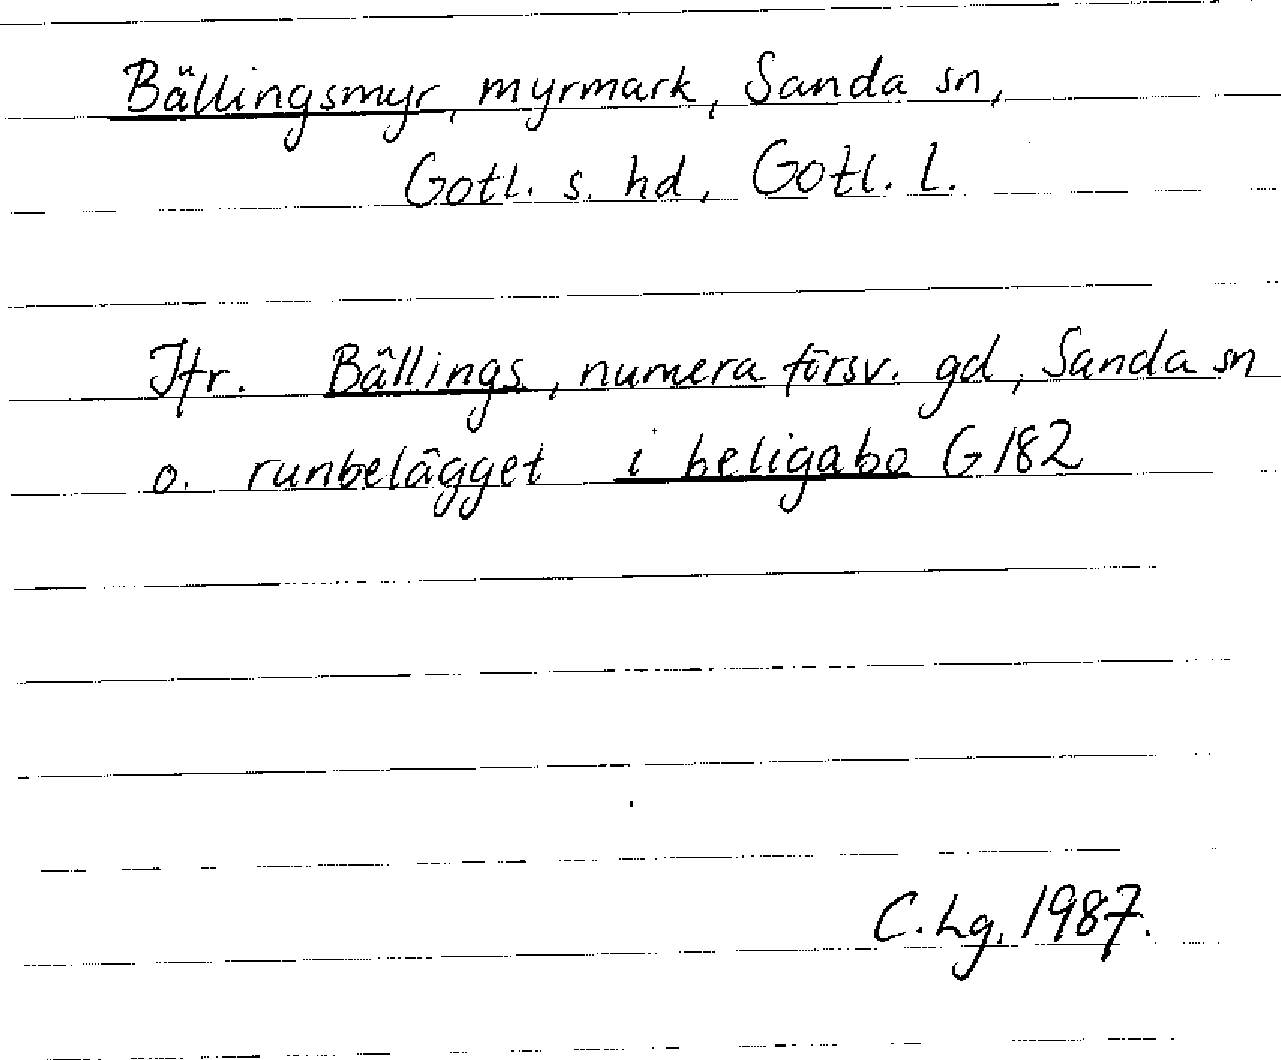 Bällingsmyr, myrmark, Sanda sn,
Gotl. s. hd, Gotl. L.
Jfr. Bällings, numera försv. gd, Sanda sn
o. runbelägget i beligabo G 182
C. Lg. 1987.